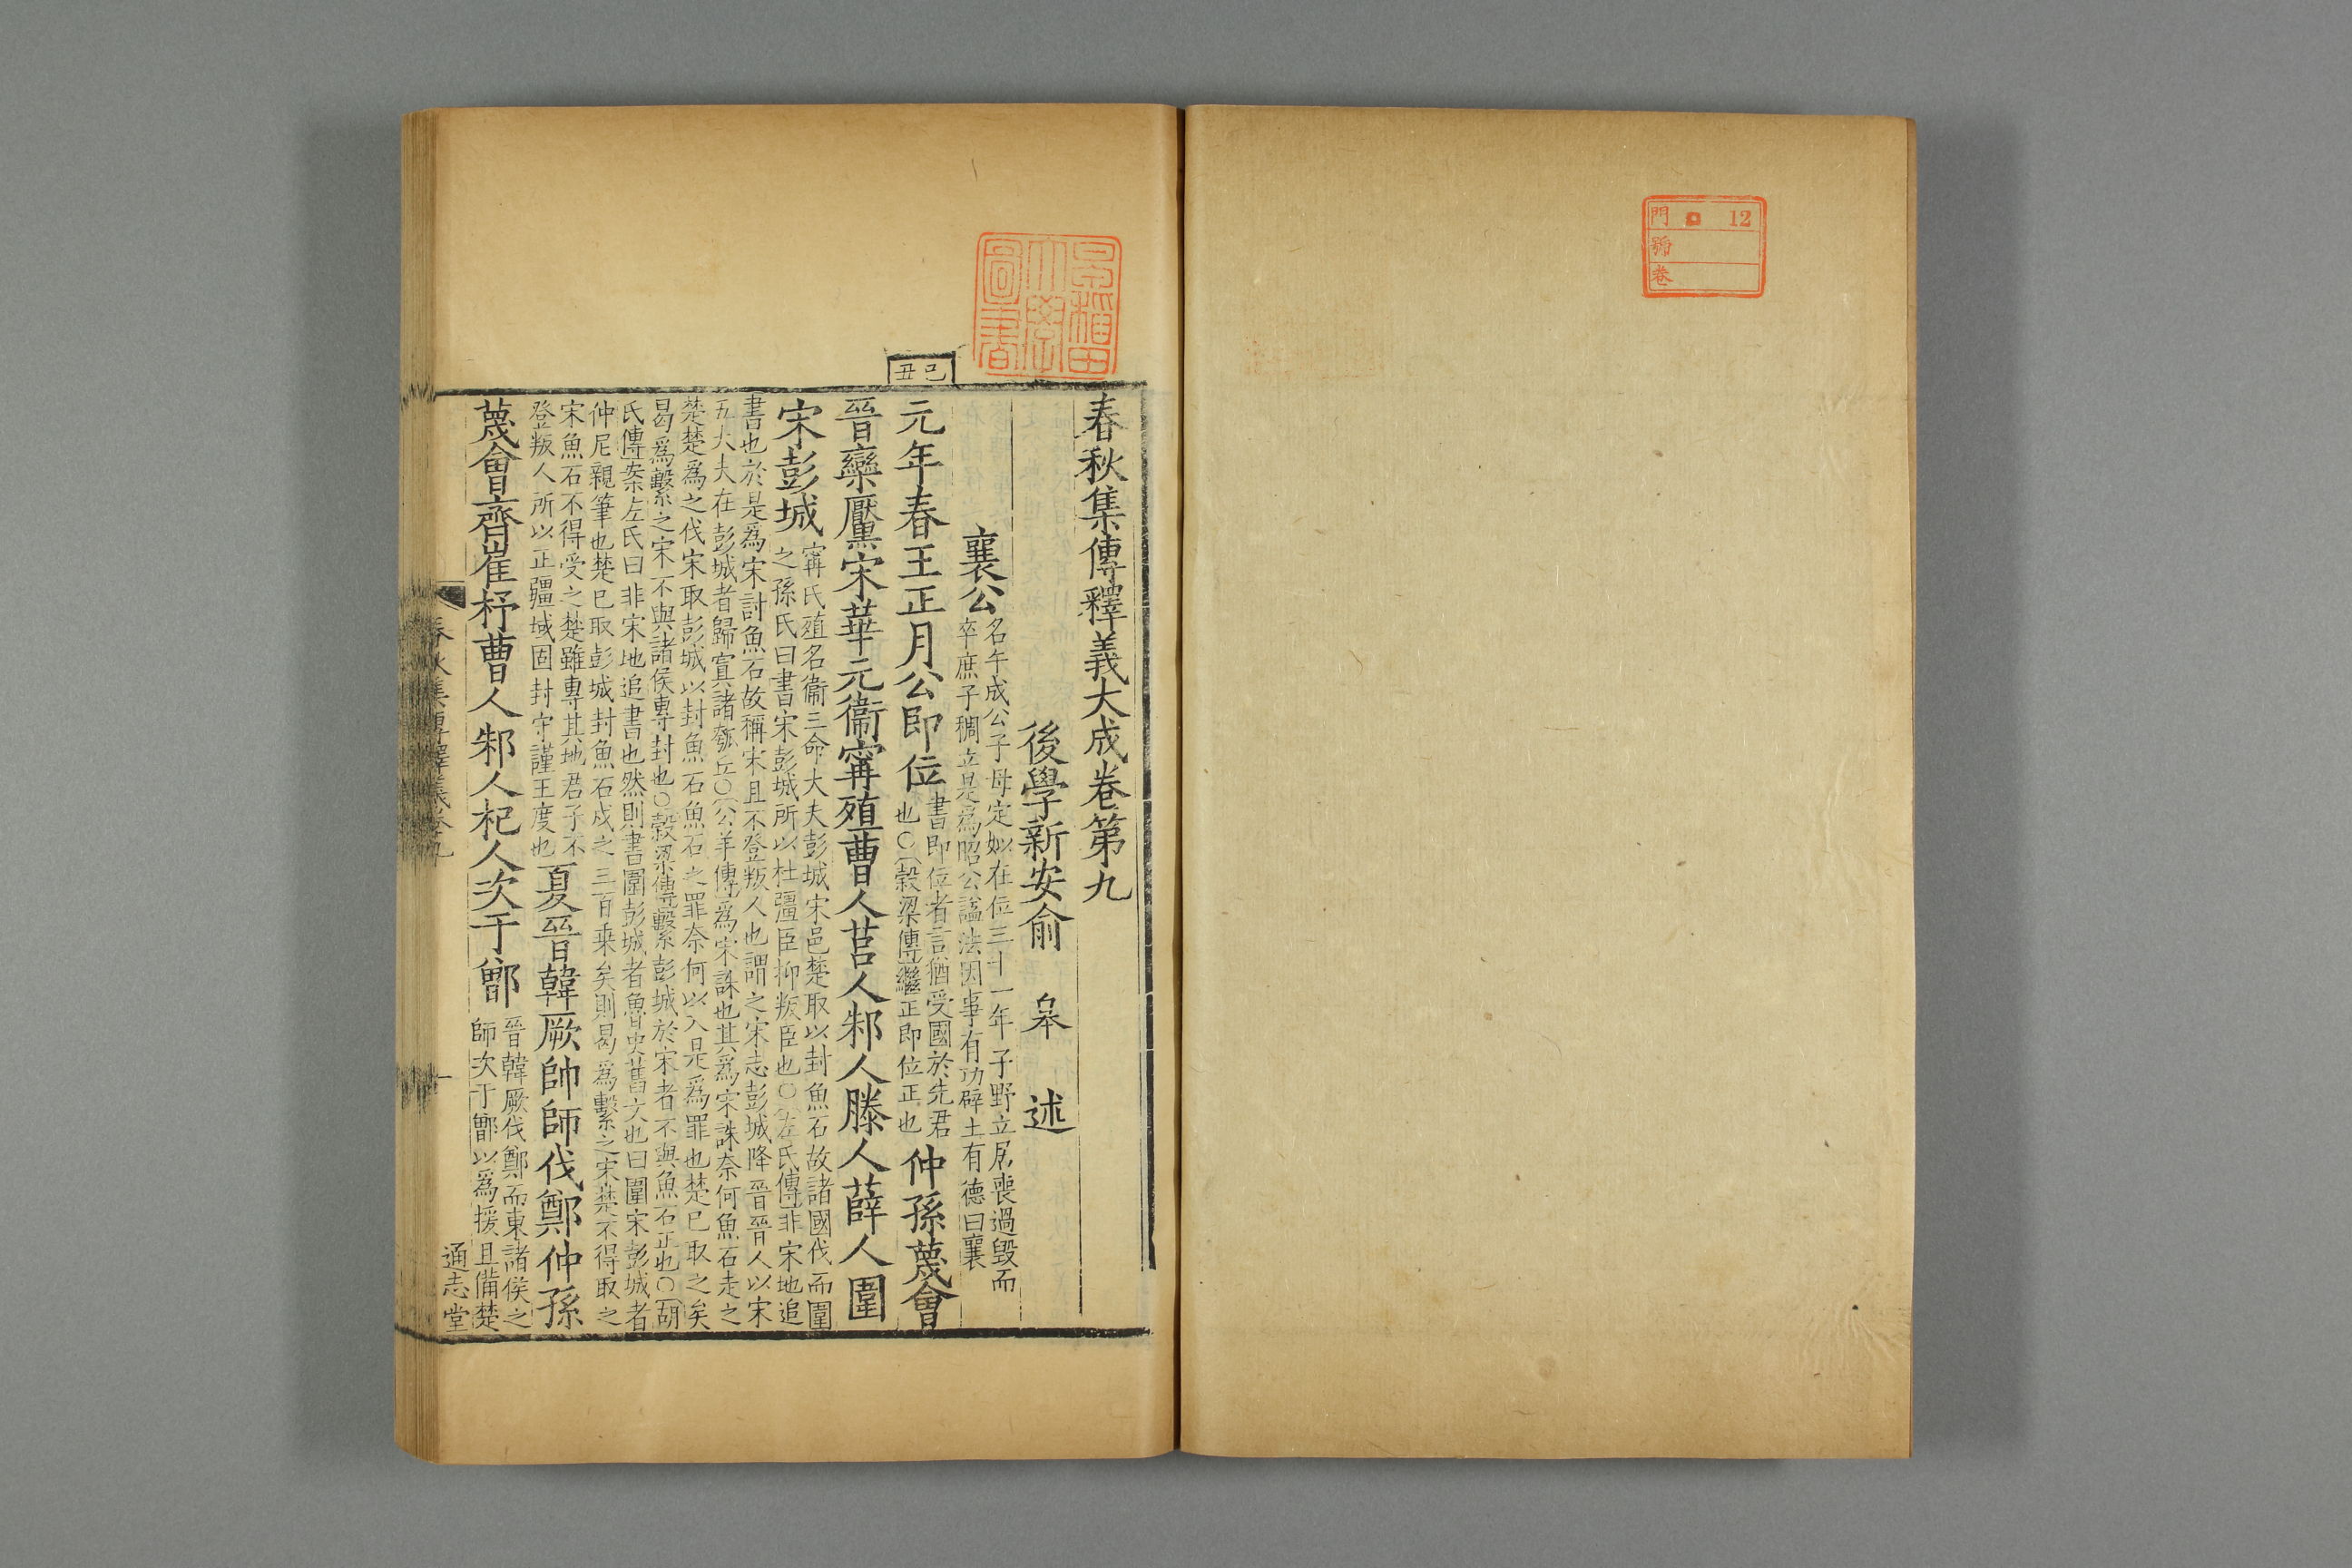 門 12
號
卷
早稲田
大學
圖書
己丑
春秋集傳釋義大成卷第九
後學新安俞 皋 述
襄公
名午成公子母定姒在位三十一年子野立居喪過毀而
卒庶子稠立是爲昭公謚法因事有功辟土有德曰襄
元年春王正月公即位
書即位者言猶受國於先君
也○穀梁傳繼正即位正也
仲孫蔑會
晉欒黶宋華元衞甯殖曹人莒人邾人滕人薛人圍
宋彭城
甯氏殖名衞三命大夫彭城宋邑楚取以封魚石故諸國伐而圍
之孫氏曰書宋彭城所以杜彊臣抑叛臣也○左氏傳非宋地追
書也於是爲宋討魚石故稱宋且不登叛人也謂之宋志彭城降晉晉人以宋
五大夫在彭城者歸寘諸瓠丘○公羊傳爲宋誅也其爲宋誅奈何魚石走之
楚楚爲之伐宋取彭城以封魚石魚石之罪奈何以入是爲罪也楚已取之矣
曷爲繫之宋不與諸侯專封也○穀梁傳繫彭城於宋者不與魚石正也○胡
氏傳案左氏曰非宋地追書也然則書圍彭城者魯史舊文也曰圍宋彭城者
仲尼親筆也楚已取彭城封魚石戍之三百乘矣則曷爲繫之宋楚不得取之
宋魚石不得受之楚雖專其地君子不
登叛人所以正疆域固封守謹王度也
夏晉韓厥帥師伐鄭仲孫
蔑會齊崔杼曹人邾人杞人次于鄫
晉韓厥伐鄭而東諸侯之
師次于鄫以爲援且備楚
春秋集傳釋義卷九
一
通志堂